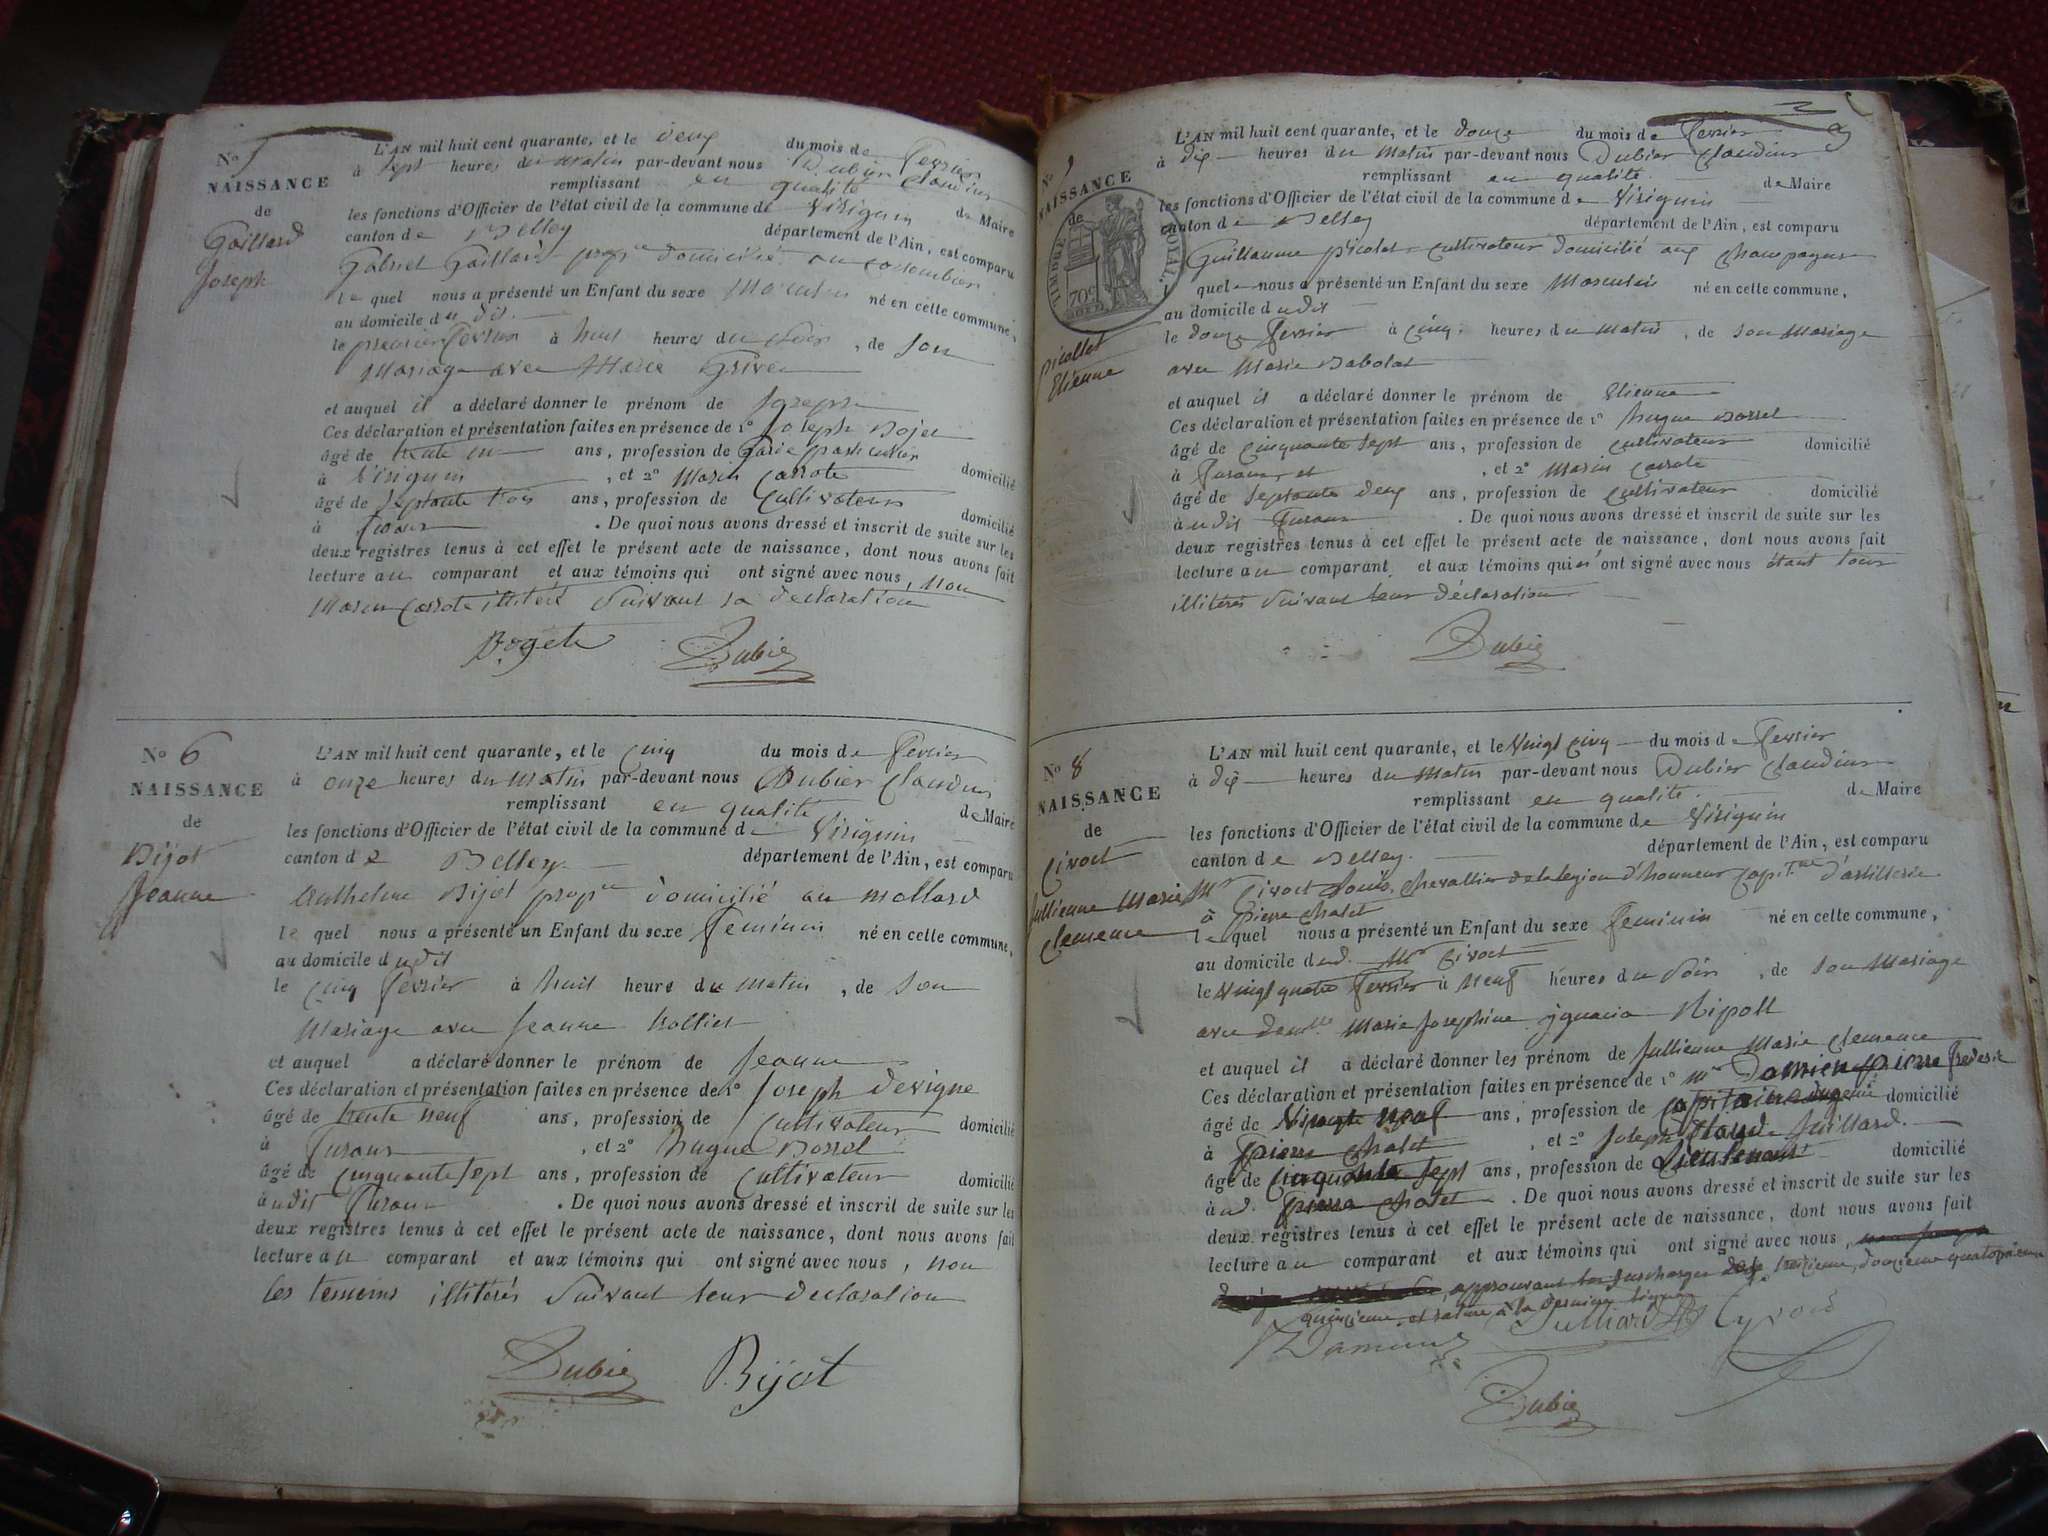 No 5
NAISSANCE
de
Gaillard
Joseph
L'AN mil huit cent quarante, et le deux du mois de Fevrier
à sept heures du matin par-devant nous Dubier Claudius
remplissant en qualité de Maire
les fonctions d'Officier de l'état civil de la commune de Virignin
canton de Belley département de l'Ain, est comparu
Gabriel Gaillard propre domicilié au colombier
le quel nous a présenté un Enfant du sexe Masculin né en cette commune,
au domicile du dit
le premier Fevrier à huit heures du soir, de son
Mariage avec Marie
et auquel il a déclaré donner le prénom de Joseph
Ces déclaration et présentation faites en présence de 1o Joseph Bojet
âgé de trente un ans, profession de Garde particulier domicilié
à Virignin, et 2o Marin Carrote
âgé de septante trois ans, profession de Cultivateur domicilié
à Furans. De quoi nous avons dressé et inscrit de suite sur les
deux registres tenus à cet effet le présent acte de naissance, dont nous avons fait
lecture au comparant et aux témoins qui ont signé avec nous, non
Marin Carrote illitéré suivant sa declaration
Bogete Dubier
No 6
NAISSANCE
de
Bijot
Jeanne
L'AN mil huit cent quarante, et le cinq du mois de Fevrier
à onze heures du matin par-devant nous Dubier Claudius
remplissant en qualité de Maire
les fonctions d'Officier de l'état civil de la commune de Virignin
canton de Belley département de l'Ain, est comparu
Anthelme Bijot propre domicilié au mollard
le quel nous a présenté un Enfant du sexe Feminin né en cette commune,
au domicile dudit
le cinq Fevrier à huit heure du matin, de son
Mariage avec Jeanne
et auquel a déclaré donner le prénom de Jeanne
Ces déclaration et présentation faites en présence de 1o Joseph Devigne
âgé de trente neuf ans, profession de Cultivateur domicilié
à Furans, et 2o hugue Borrel
âgé de cinquante sept ans, profession de Cultivateur domicilié
à udit Furans. De quoi nous avons dressé et inscrit de suite sur les
deux registres tenus à cet effet le présent acte de naissance, dont nous avons fait
lecture au comparant et aux témoins qui ont signé avec nous, non
les temoins illiterés suivant leur declaration
Dubier Bijot
No 7
NAISSANCE
de
TIMBRE ROYAL
70c
picollet
Etienne
L'AN mil huit cent quarante, et le douze du mois de Fevrier
à dix heures du matin par-devant nous Dubier Claudius
remplissant en qualité de Maire
les fonctions d'Officier de l'état civil de la commune de Virignin
canton de Belley département de l'Ain, est comparu
Guillaume picolet cultivateur domicilié aux champagne
quel nous a présenté un Enfant du sexe Masculin né en cette commune,
au domicile dudit
le douze Fevrier à cinq heures du matin, de son Mariage
avec Marie Babolat
et auquel il a déclaré donner le prénom de Etienne
Ces déclaration et présentation faites en présence de 1o hugue Borrel
âgé de cinquante sept ans, profession de cultivateur domicilié
à Furans, et 2o Marin Carrote
âgé de septante deux ans, profession de cultivateur domicilié
à udit Furans. De quoi nous avons dressé et inscrit de suite sur les
deux registres tenus à cet effet le présent acte de naissance, dont nous avons fait
lecture au comparant et aux témoins qui n'ont signé avec nous étant tous
illiterés suivant leur déclaration
Dubier
No 8
NAISSANCE
de
Civoct
Jullienne Marie
Clemence
L'AN mil huit cent quarante, et le vingt cinq du mois de Fevrier
à dix heures du matin par-devant nous Dubier Claudius
remplissant en qualité de Maire
les fonctions d'Officier de l'état civil de la commune de Virignin
canton de Belley département de l'Ain, est comparu
Mr Civoct Louis, Chevallier de la legion d'honneur Capitne d'artillerie
à pierre Chatel
le quel nous a présenté un Enfant du sexe Feminin né en cette commune,
au domicile dud. Mr Civoct
le vingt quatre Fevrier à neuf heures du soir, de son Mariage
avec demlle Marie Josephine ygnacia Ripoll
et auquel il a déclaré donner les prénom de Jullienne Marie Clemence
Ces déclaration et présentation faites en présence de 1o Mr Damien pierre frederic
âgé de neuf ans, profession de capitaine du genie domicilié
à pierre Chatel, et 2o Joseph Claude Juillard
âgé de cinquante sept ans, profession de Lieutenant domicilié
à ud. pierre Chatel. De quoi nous avons dressé et inscrit de suite sur les
deux registres tenus à cet effet le présent acte de naissance, dont nous avons fait
lecture au comparant et aux témoins qui ont signé avec nous,
approuvant les surcharges treizieme, douzieme quatorzieme
quinzieme, et rature à la derniere ligne
Damien Julliard Cyvoct
Dubier